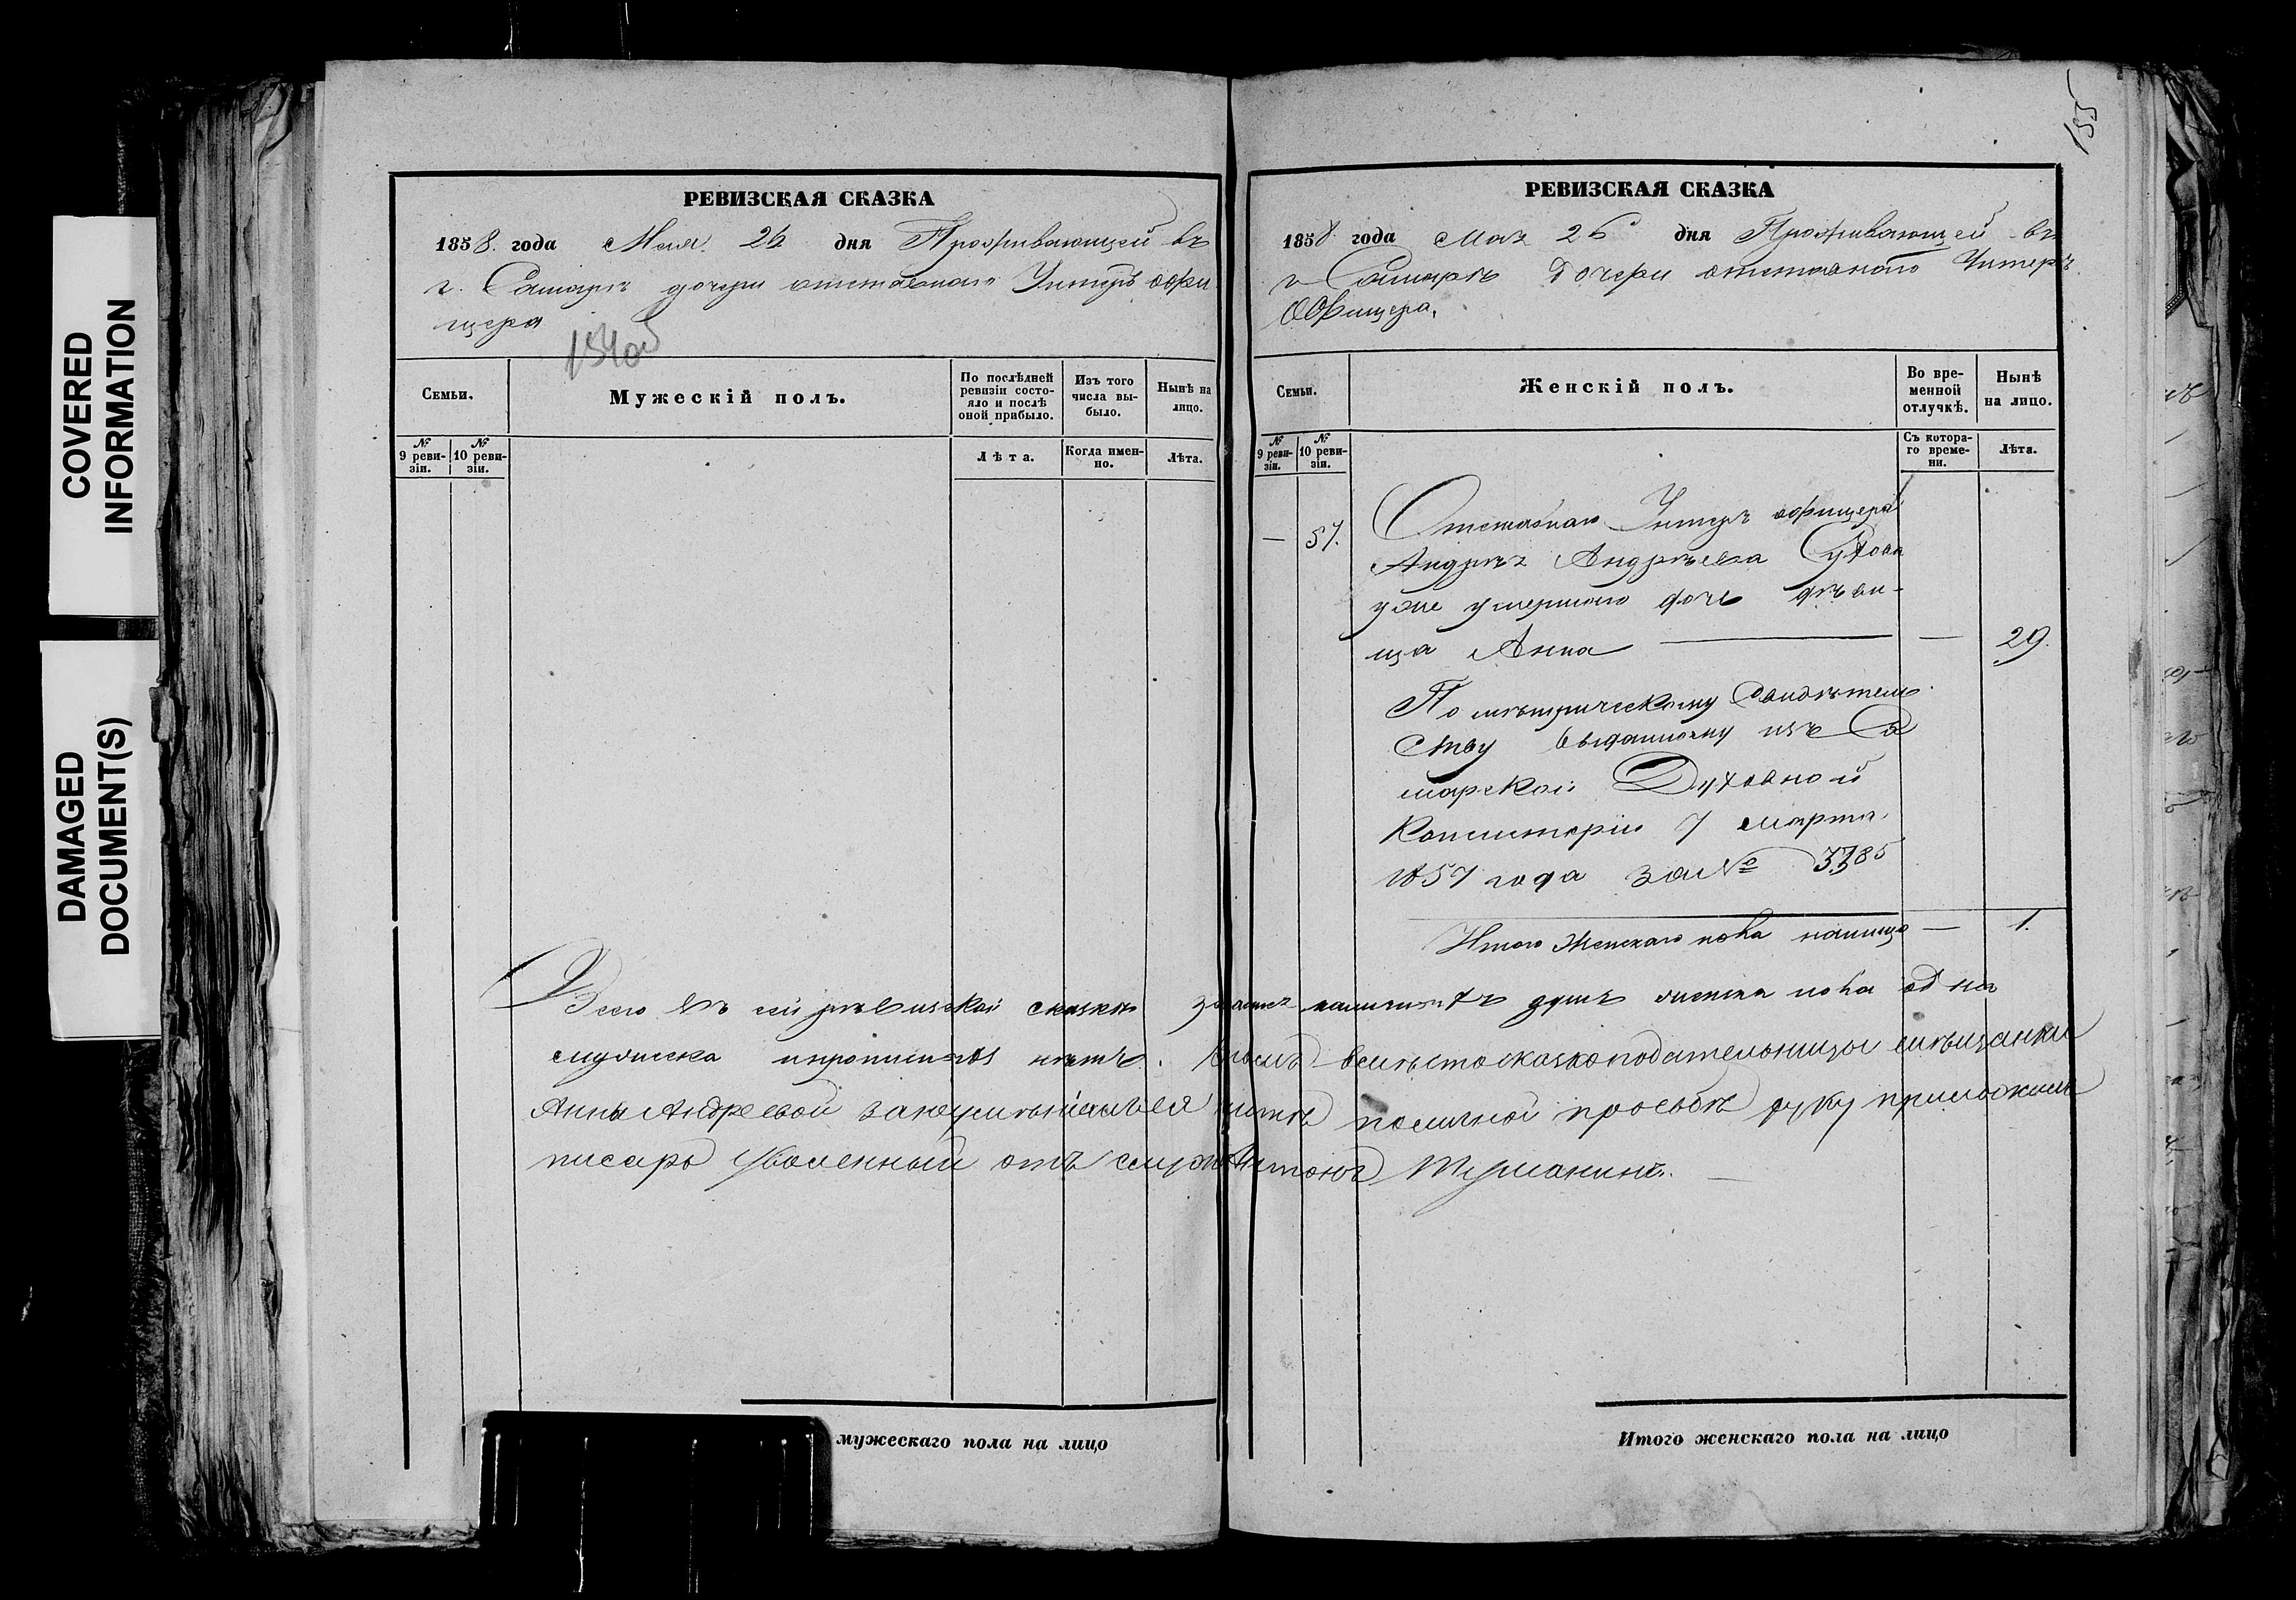 COVERED INFORMATION
DAMAGED DOCUMENT(S)
РЕВИЗСКАЯ СКАЗКА
1858. года Мая 26 дня Проживающей въ
г. Самарѣ дочери отставнаго Унтеръ офи
цера
154об
Семьи.
Мужескій полъ.
По послѣдней ревизіи состояло и послѣ оной прибыло.
Изъ того числа выбыло.
Нынѣ на лицо.
№ 9 ревизіи.
№ 10 ревизіи.
Лѣта.
Когда именно.
Лѣта.
мужескаго пола на лицо
155
РЕВИЗСКАЯ СКАЗКА
1858 года Мая 26 дня Проживающей въ
г Самарѣ Дочери отставнаго Унтеръ
Офицера.
Семьи.
Женскій полъ.
Во временной отлучкѣ.
Нынѣ на лицо.
№ 9 ревизіи.
№ 10 ревизіи.
Съ котораго времени.
Лѣта.
— 57. Отставнаго Унтеръ офицера
Андрея Андрѣева
уже умершаго дочь дѣви-
ца Анна — 29.
По мѣтрическому Свидѣтель
ству выданному изъ Са
марской Духовной
Консисторіи 7 марта
1857 года за №
Итого Женскаго пола налицо — 1.
Всего въ сей рѣвизской сказкѣ наличныхъ душъ женска пола одна
а мужеска и прописныхъ нѣтъ. вмѣсто сказкоподательницы мѣщанки
Анны Андреевой за неумѣніемъ ея по личной просьбѣ руку приложилъ
писарь Уволенный отъ
Итого женскаго пола на лицо